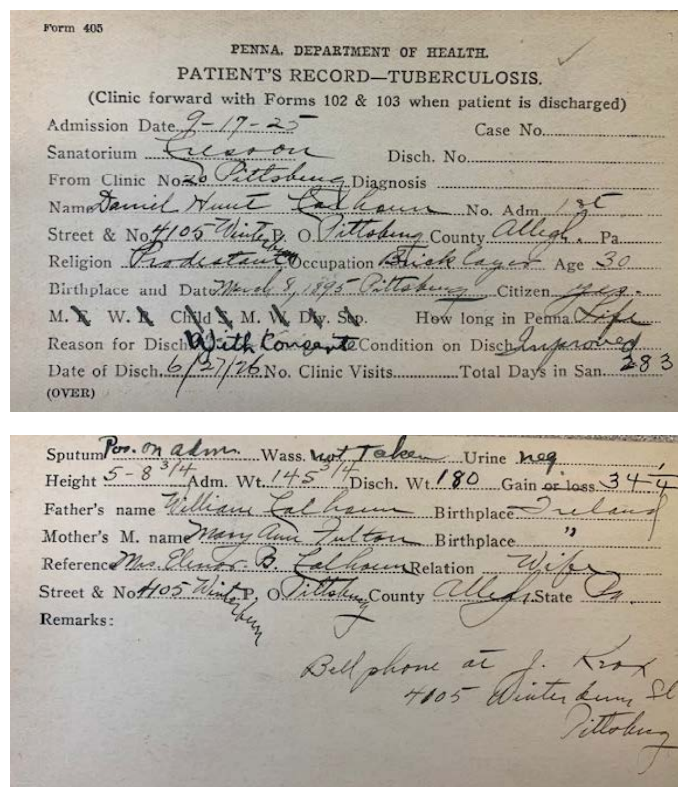 Form 405
PENNA. DEPARTMENT OF HEALTH.
PATIENT'S RECORD—TUBERCULOSIS.
(Clinic forward with Forms 102 & 103 when patient is discharged)
Admission Date 9-17-25 Case No.
Sanatorium Cresson Disch. No.
From Clinic No. 20 Pittsburg Diagnosis
Name Daniel Hunt Calhoun No. Adm. 1st
Street & No. 4105 Winterburn P. O. Pittsburg County Allegh. Pa
Religion Prodestant Occupation Bricklayer Age 30
Birthplace and Date March 8, 1895 Pittsburg Citizen yes.
M. F. W. B. Child S. M. W. Div. Sep. How long in Penna. Life
Reason for Disch. With Consent Condition on Disch. Improved
Date of Disch. 6/27/26 No. Clinic Visits Total Days in San. 283
(OVER)
Sputum Pos. on adm. Wass. not taken Urine neg.
Height 5-8 3/4 Adm. Wt. 145 3/4 Disch. Wt. 180 Gain or loss 34 1/4
Father's name William Calhoun Birthplace Ireland
Mother's M. name Mary Ann Fulton Birthplace "
Reference Mrs. Elenor B. Calhoun Relation Wife
Street & No. 4105 Winterburn P. O. Pittsburg County Allegh State Pa.
Remarks:
Bell phone at J. Knox
4105 Winterburn St
Pittsburg